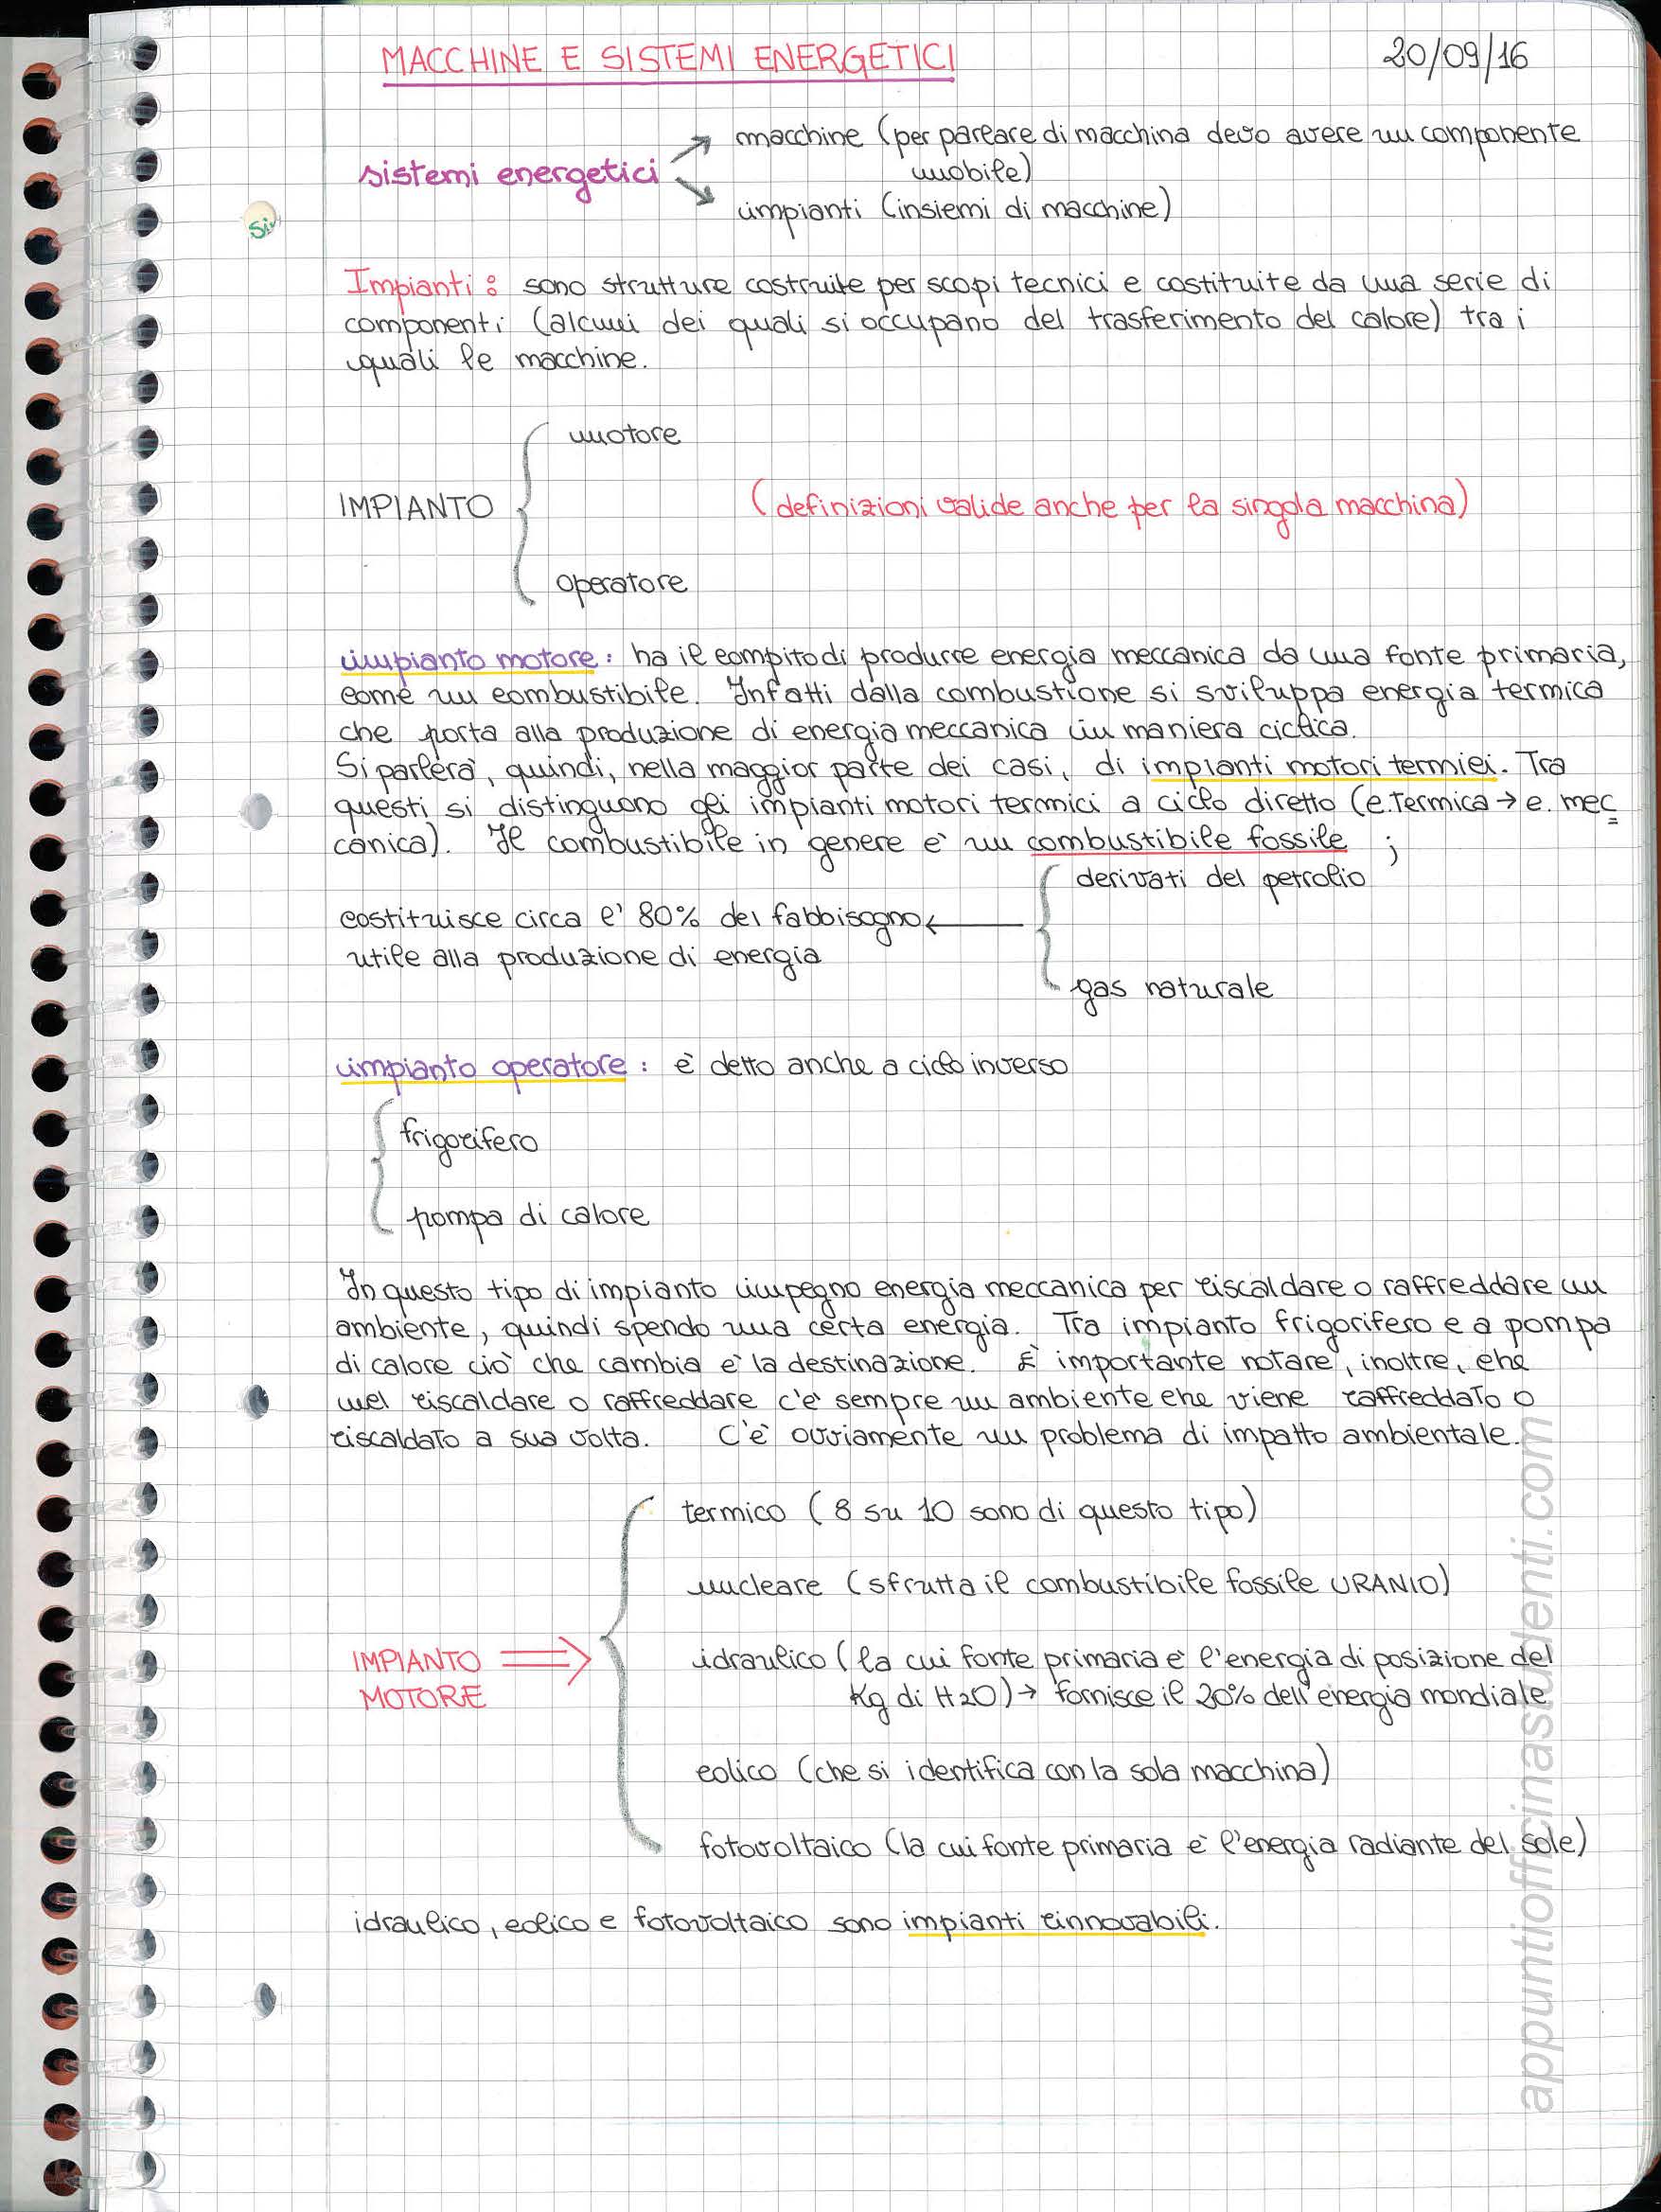 MACCHINE E SISTEMI ENERGETICI
20/09/16
sistemi energetici
macchine (per parlare di macchina devo avere un componente
mobile)
impianti (insiemi di macchine)
Si
Impianti: sono strutture costruite per scopi tecnici e costituite da una serie di
componenti (alcuni dei quali si occupano del trasferimento del calore) tra i
quali le macchine.
motore
IMPIANTO
(definizioni valide anche per la singola macchina)
operatore
impianto motore: ha il compito di produrre energia meccanica da una fonte primaria,
come un combustibile. Infatti dalla combustione si sviluppa energia termica
che porta alla produzione di energia meccanica in maniera ciclica.
Si parlerà, quindi, nella maggior parte dei casi, di impianti motori termici. Tra
questi si distinguono gli impianti motori termici a ciclo diretto (e.termica → e. mec
canica). Il combustibile in genere è un combustibile fossile ;
derivati del petrolio
costituisce circa l'80% del fabbisogno ←
utile alla produzione di energia
gas naturale
impianto operatore: è detto anche a ciclo inverso
frigorifero
pompa di calore
In questo tipo di impianto impegno energia meccanica per riscaldare o raffreddare un
ambiente, quindi spendo una certa energia. Tra impianto frigorifero e a pompa
di calore ciò che cambia è la destinazione. È importante notare, inoltre, che
nel riscaldare o raffreddare c'è sempre un ambiente che viene raffreddato o
riscaldato a sua volta. C'è ovviamente un problema di impatto ambientale.
termico (8 su 10 sono di questo tipo)
nucleare (sfrutta il combustibile fossile URANIO)
IMPIANTO ⇒
MOTORE
idraulico (la cui fonte primaria è l'energia di posizione del
Kg di H2O) → fornisce il 20% dell'energia mondiale
eolico (che si identifica con la sola macchina)
fotovoltaico (la cui fonte primaria è l'energia radiante del sole)
idraulico, eolico e fotovoltaico sono impianti rinnovabili.
appuntiofficinastudenti.com